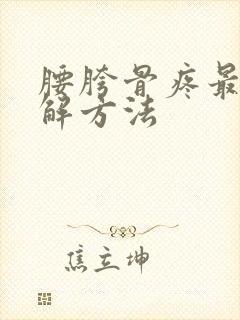 腰胯骨疼最
解方法
焦立坤